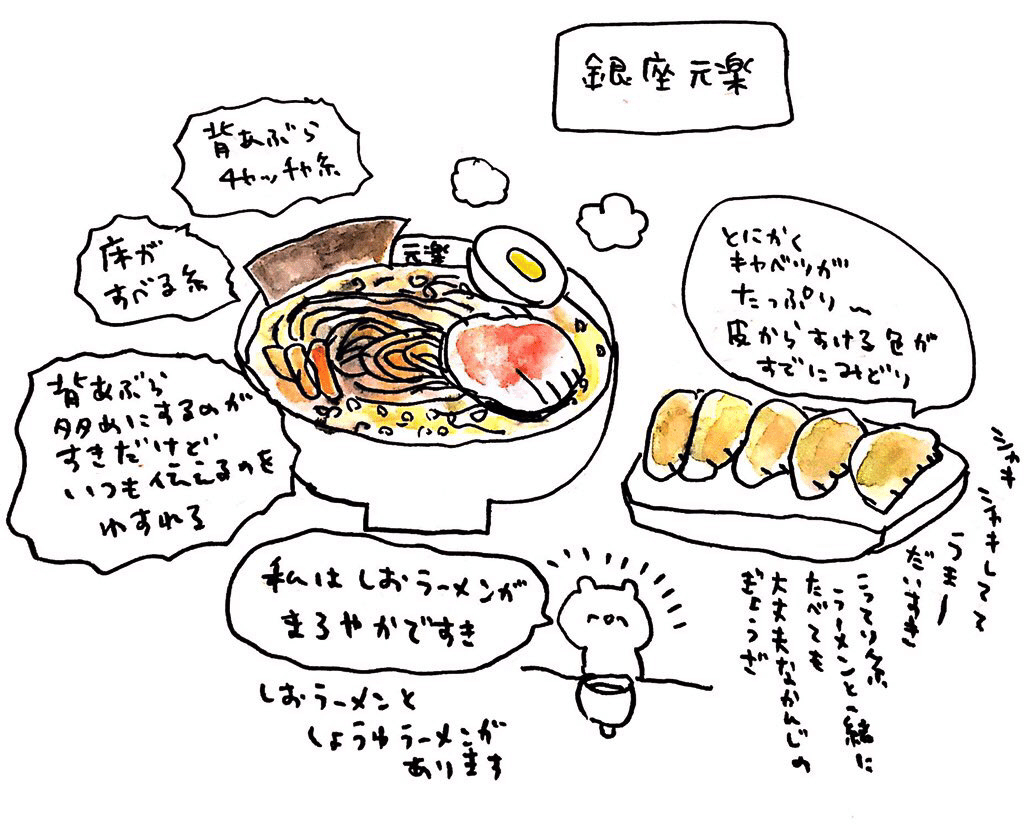 銀座元楽
背あぶら
チャッチャ系
床が
すべる系
元楽
背あぶら
多めにするのが
すきだけど
いつも伝えるのを
わすれる
とにかく
キャベツが
たっぷり〜
皮からすける色が
すでにみどり
シャキ
シャキしてて
うまー
だいすき
こってりんな
ラーメンと一緒に
たべても
大丈夫なかんじの
ぎょうざ
私はしおラーメンが
まろやかですき
しおラーメンと
しょうゆラーメンが
あります